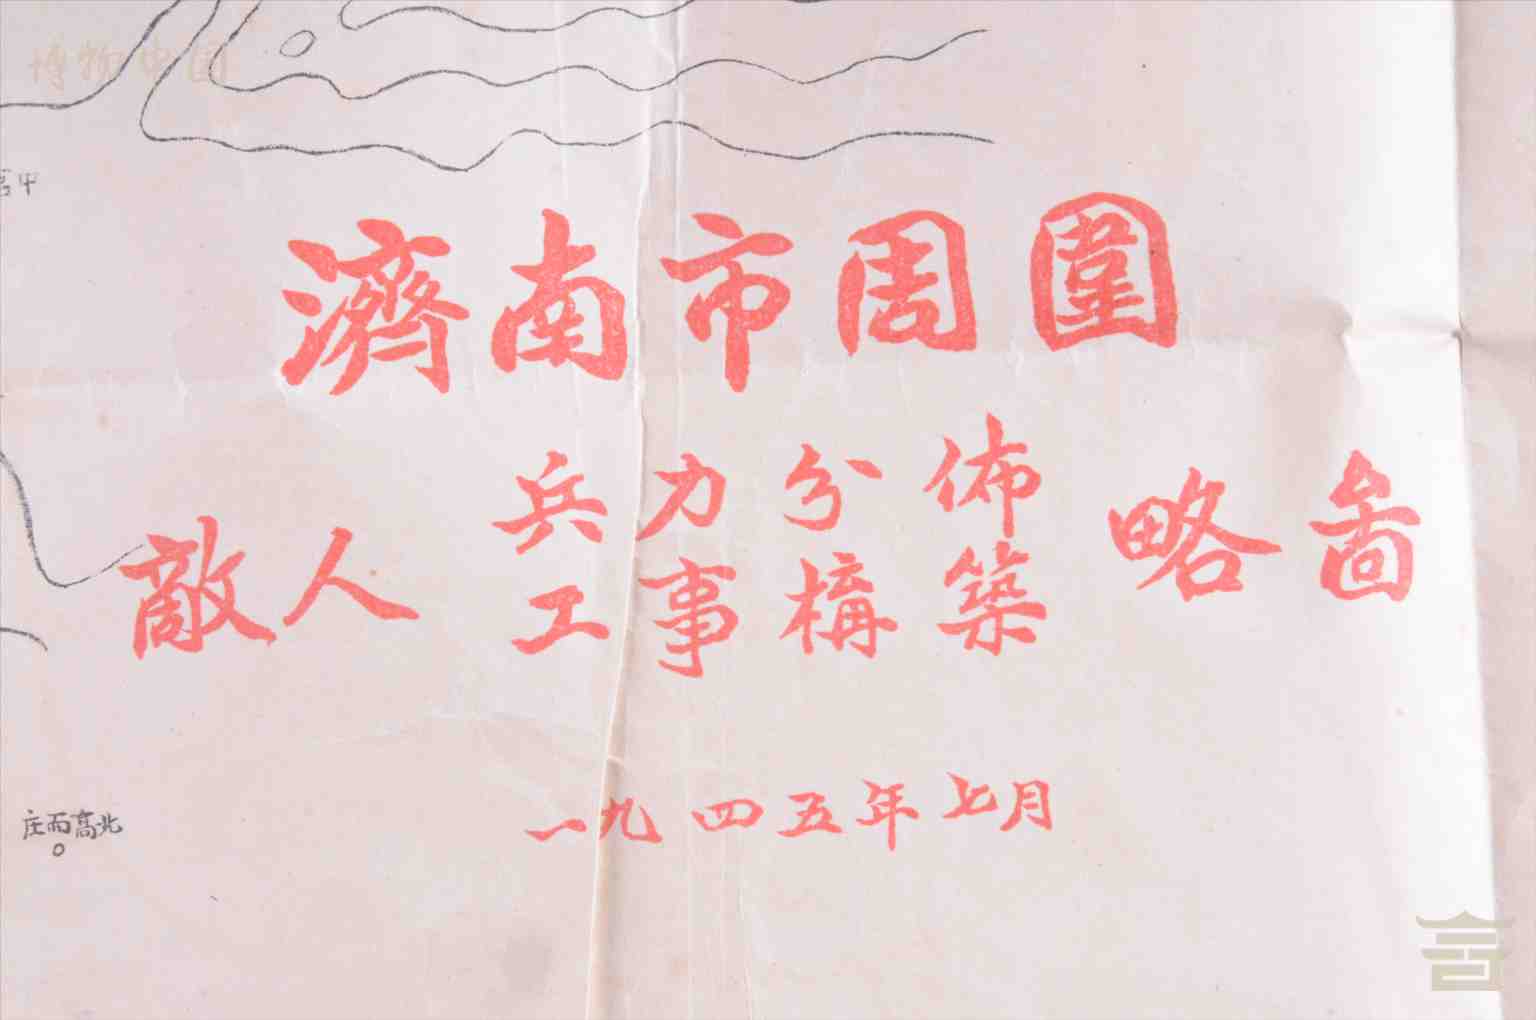 博物中国
濟南市周圍
敵人
兵力分佈
工事構築
略啚
一九四五年七月
庄而高北